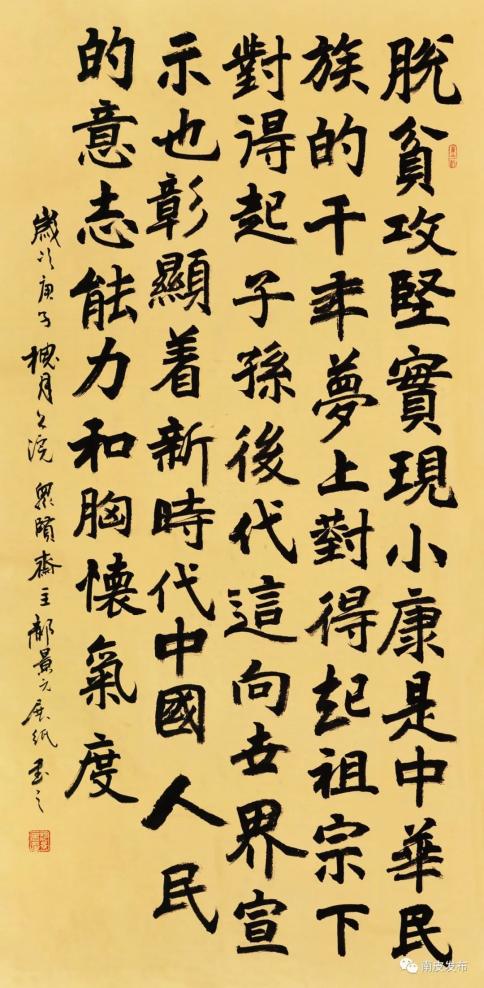 脫貧攻堅實現小康是中華民
族的千年夢上對得起祖宗下
對得起子孫後代這向世界宣
示也彰顯着新時代中國人民
的意志能力和胸懷氣度
歲次庚子槐月之浣 齋主郝景元展紙書之
南皮发布